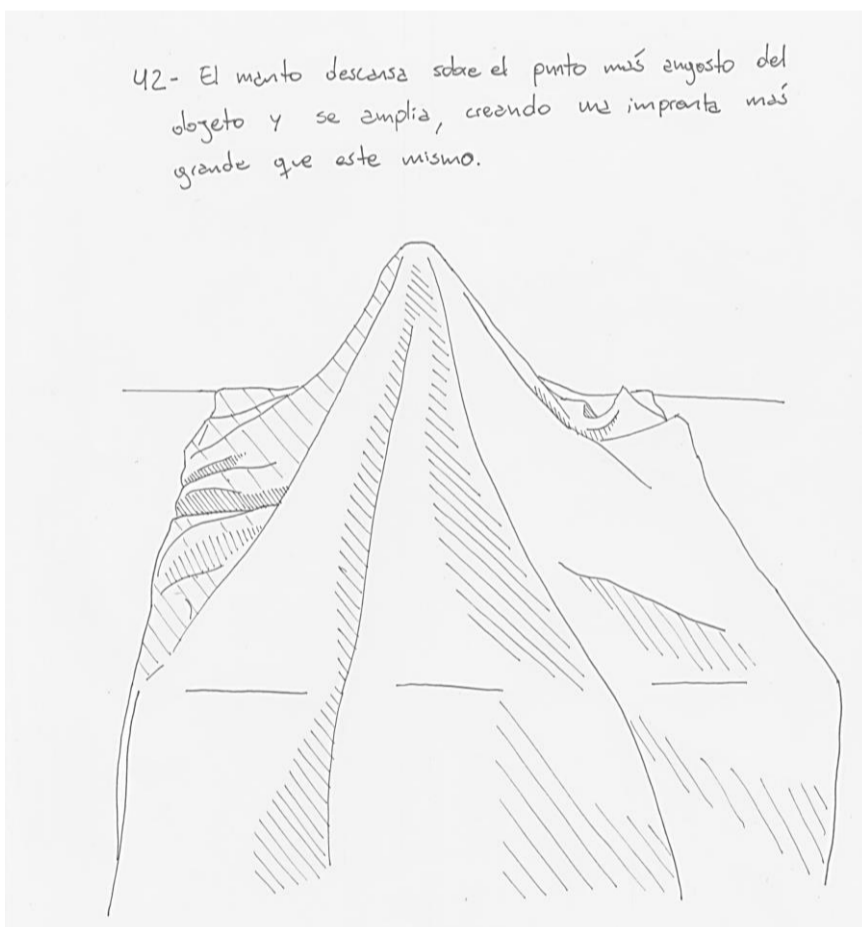 42- El manto descansa sobre el punto más angosto del
objeto y se amplia, creando una impronta más
grande que este mismo.